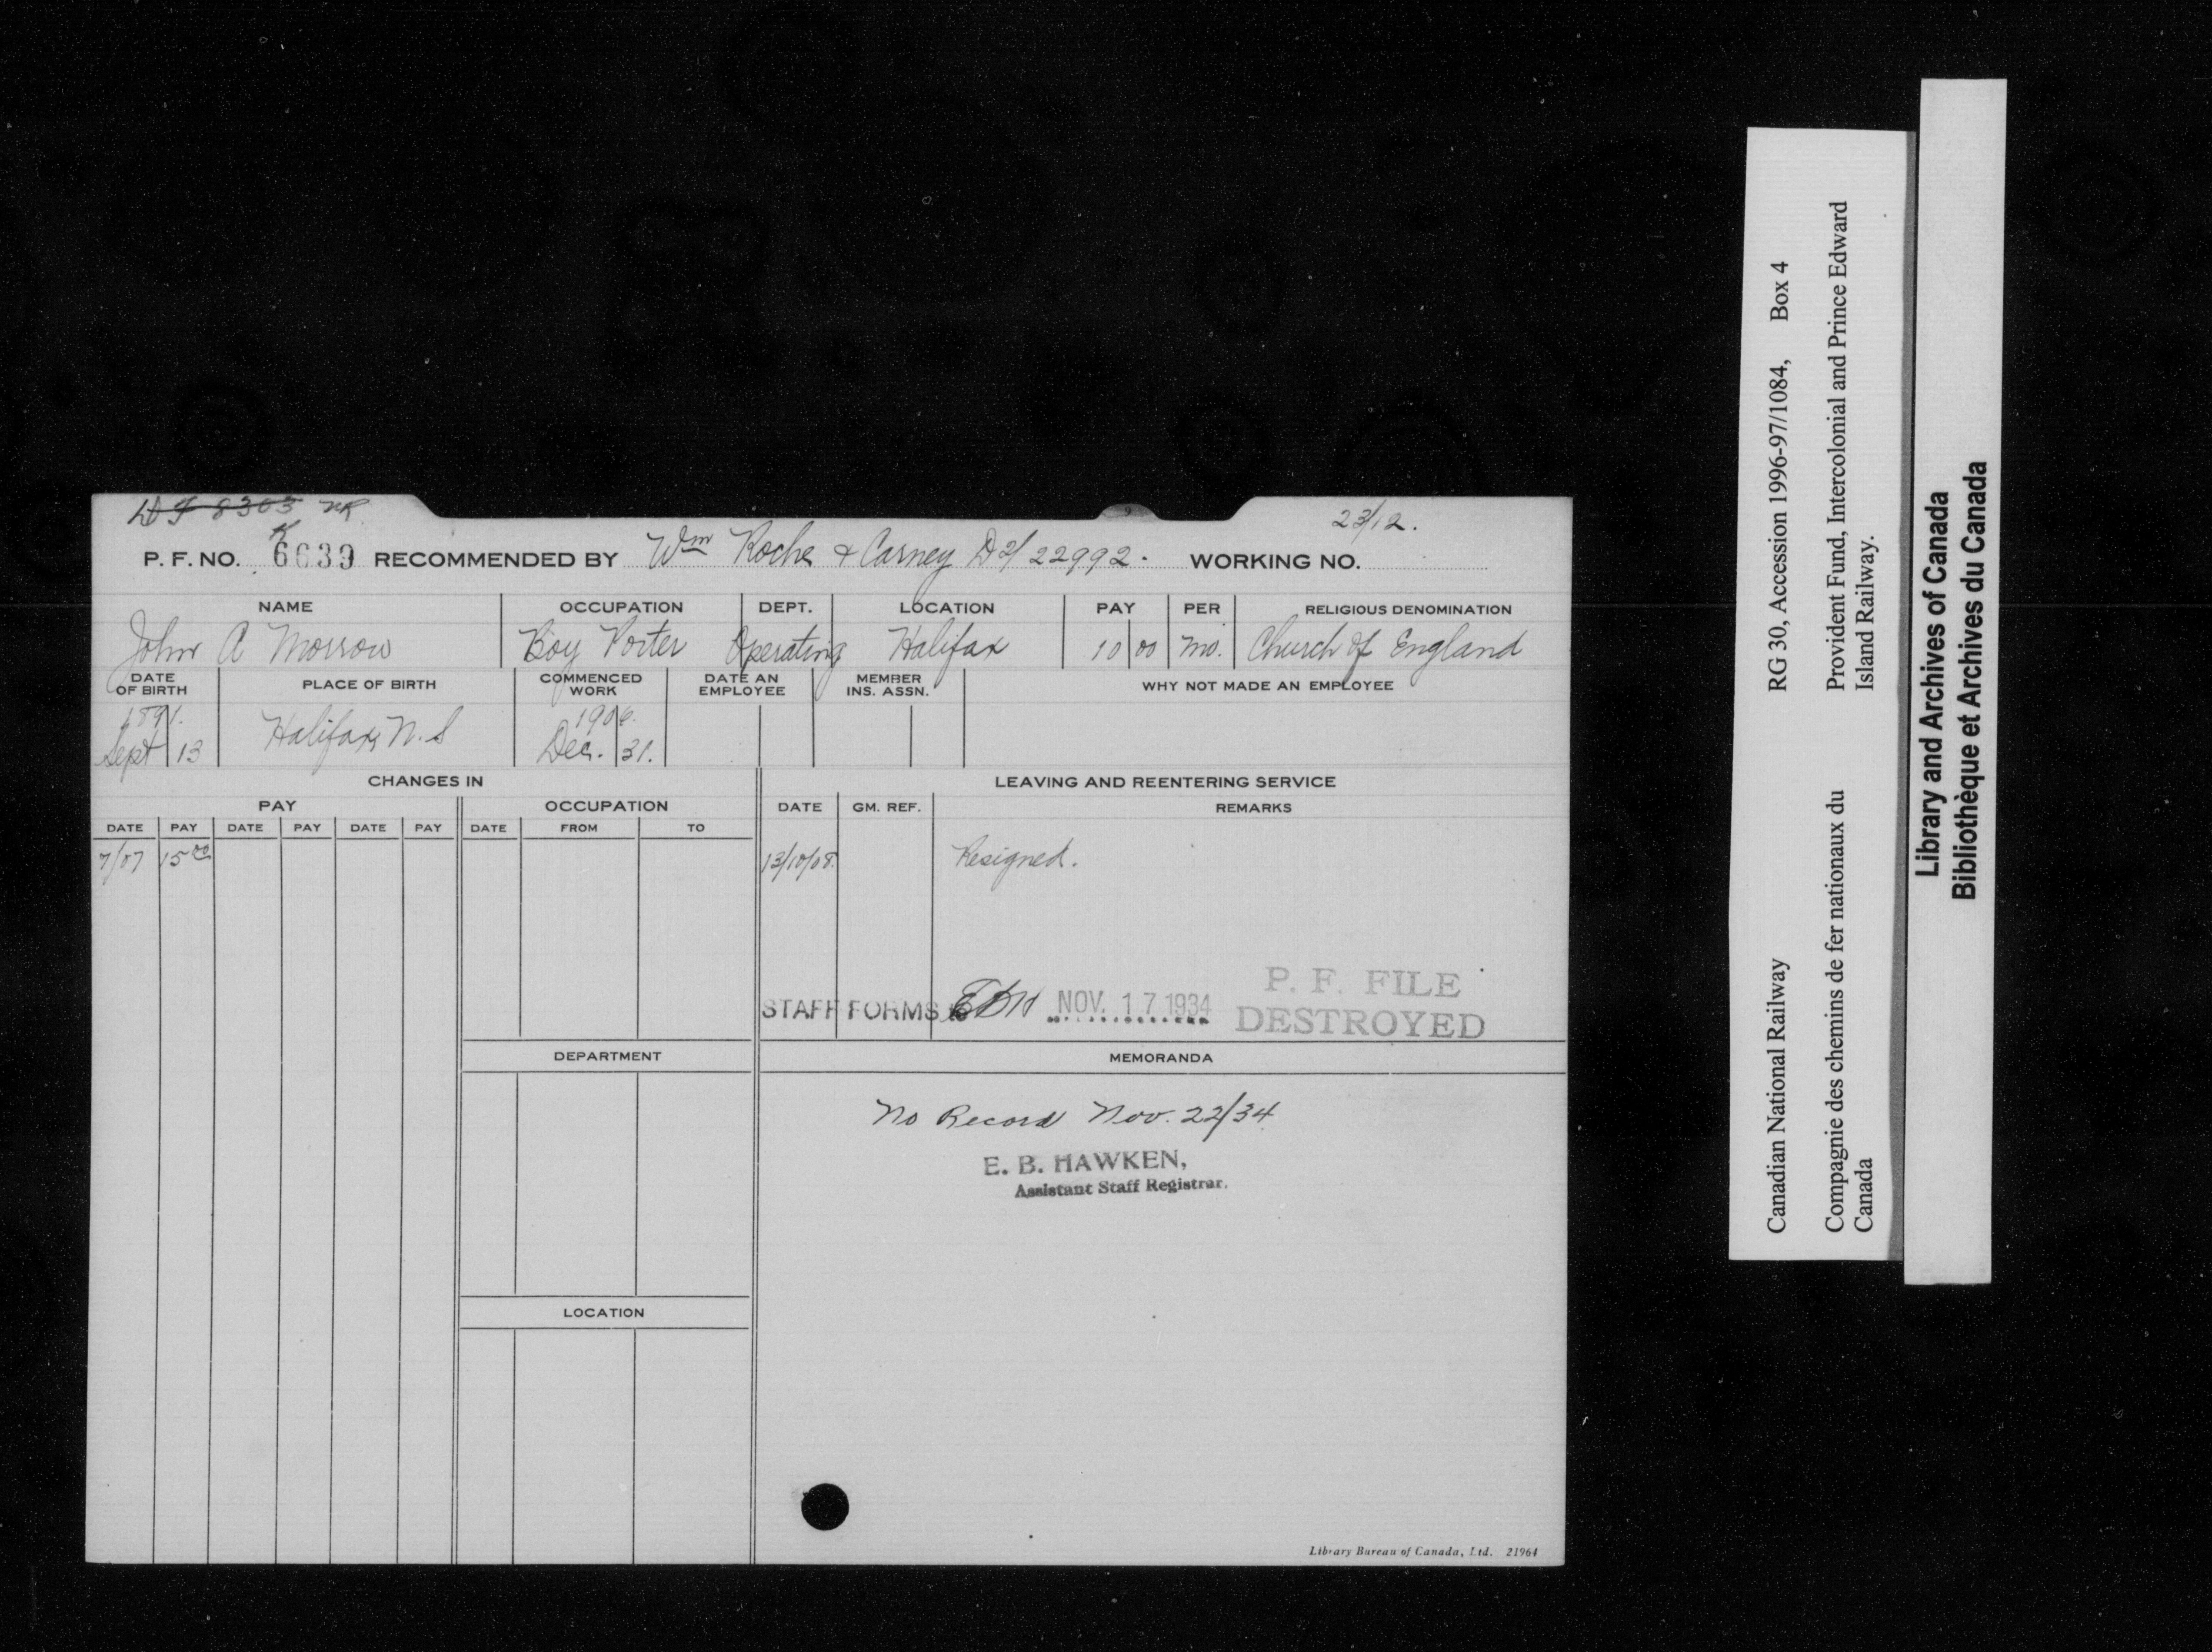 DF 8303 NR
23/12.
P. F. NO. 6639 RECOMMENDED BY Wm Roche & Carney D2/22992. WORKING NO.
NAME OCCUPATION DEPT. LOCATION PAY PER RELIGIOUS DENOMINATION
John A Morrow Boy Porter Operating Halifax 10 00 mo. Church of England
DATE OF BIRTH PLACE OF BIRTH COMMENCED WORK DATE AN EMPLOYEE MEMBER INS. ASSN. WHY NOT MADE AN EMPLOYEE
1891. 1906.
Sept 13 Halifax N.S Dec. 31.
CHANGES IN LEAVING AND REENTERING SERVICE
PAY OCCUPATION DATE GM. REF. REMARKS
DATE PAY DATE PAY DATE PAY DATE FROM TO
7/07 15 00 13/10/08. Resigned.
P. F. FILE
STAFF FORMS EBH NOV. 17 1934 DESTROYED
DEPARTMENT MEMORANDA
No Record Nov. 22/34
E. B. HAWKEN,
Assistant Staff Registrar.
LOCATION
Library Bureau of Canada, Ltd. 21964
Canadian National Railway RG 30, Accession 1996-97/1084, Box 4
Compagnie des chemins de fer nationaux du Provident Fund, Intercolonial and Prince Edward
Canada Island Railway.
Library and Archives of Canada
Bibliothèque et Archives du Canada